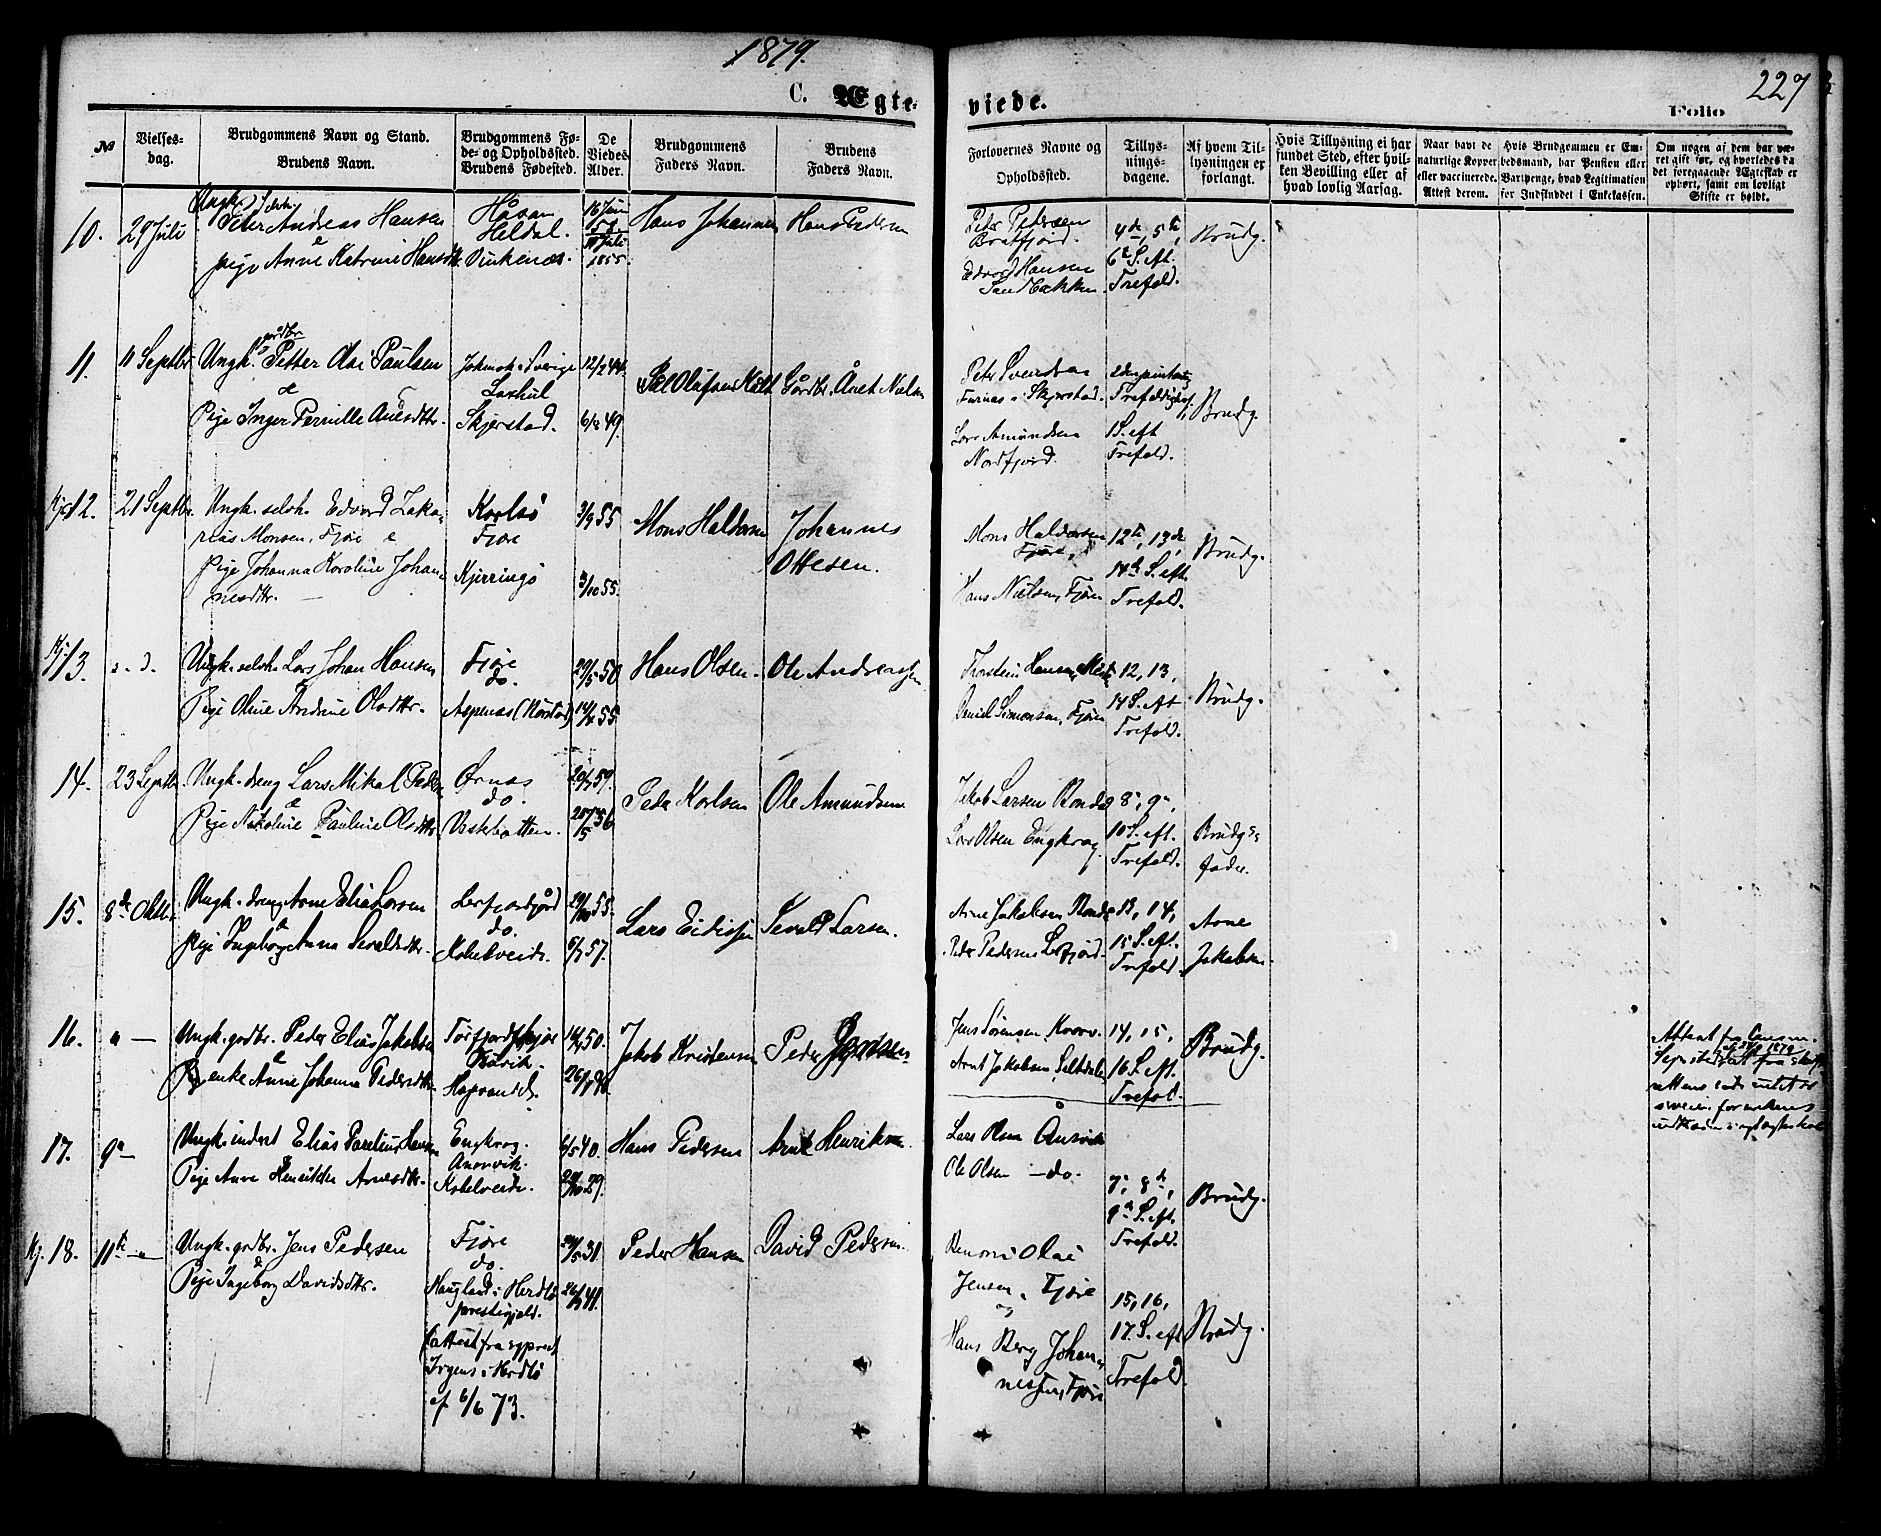 1879.
227
C. Ægte-
viede.
Folio
№
Vielses-
dag.
Brudgommens Navn og Stand.
Brudens Navn.
Brudgommens Fø-
de- og Opholdssted.
Brudens Fødested.
De
Viedes
Alder.
Brudgommens
Faders Navn.
Brudens
Faders Navn.
Forlovernes Navne og
Opholdssted.
Tillys-
nings-
dagene.
Af hvem Til-
lysningen er
forlangt.
Hvis Tillysning ei har
fundet Sted, efter hvil-
ken Bevilling eller af
hvad lovlig Aarsag.
Naar havt de
naturlige Kopper
eller vaccinerede.
Attest derom.
Hvis Brudgommen er Em-
bedsmand, har Pension eller
Vartpenge, hvad Legitimation
for Indskuddet i Enkekassen.
Om nogen af dem har væ-
ret gift før, og hvorledes da
det foregaaende Ægteskab er
ophørt, samt om lovligt
Skifte er holdt.
10.
29 Juli
Peter Andreas Hansen
pige Anne Katrine Hansdtr.
Håsan
Heldal.
Vinkenæs.
16 Juni
1855
Hans Johannesen
Hans Pedersen
Peter Pedersen
Bratfjord.
Edvard Hansen
Sandbakken.
4de, 5te,
6te S. eft.
Trefold.
Brudg.
11.
11 Septbr
Ungk. Petter Olai Paulsen
&
Pige Inger Pernille Anesdtr.
Jokmok i Sverige
Laxhul
Skjerstad.
12/2 44.
6/8 49.
Gårdbr.Ånet Nielsen
Peter Svendsen
Furnes i Skjerstad.
Lars Amundsen
Nordfjord.
Trefoldighed
1 S. eft
Trefold.
Brudg.
Kj. 12.
21 Septbr.
Ungk. selvh. Edvard Zaka-
rias Monsen, Fjøre &
Pige Johanna Karoline Johan-
nesdtr.
Karlsö
Fjøre
Kjerringö
3/9 55
3/10 55.
Mons Haldorsen
Johannes
Ottesen.
Mons Haldorsen
Fjøre,
Hans Nielsen, Fjøre
12te, 13de,
14de S. eft.
Trefold.
Brudg.
Kj. 13.
s. d.
Ungk. selvh. Lars Johan Hansen
Pige Oline Andrine Olsdtr.
Fjøre
do.
Aspenæs (Nørstad)
29/5 50
14/4 55.
Hans Olsen.
Ole Andreassen
Thorstein Hansen,
Daniel Simonsen, Fjøre
12, 13,
14 S. eft
Trefold.
Brudg.
14.
23 Septbr.
Ungk. dreng Lars Mikal Peder
&
Pige Nikoline Pauline Olsdtr.
Ørnæs
do.
Vestbotten.
56
Peder Karlsen
Ole Amundsen
Jakob Larsen Bonda
Lars Olsen Engkrog.
8de, 9de,
10 S. eft.
Trefold.
Brudgs
fader.
15.
8de Oktbr
Ungk. dreng Arne Elias Larsen
&
Pige Ingeborg Anna Sevaldsdtr.
Lerfjordfjord
do.
Kobelveidr.
29/10 55.
6/7 57.
Lars Eidissen
Sevald Larsen.
Arne Jakobsen Bonda
Peder Pedersen Lerfjord.
13, 14,
15 S. eft.
Trefold.
Arne
Jakobsen.
16.
" —
Ungk. grdbr. Peder Elias Jakobsen
&
Enke Anne Johanna Pedersdtr.
14/4 50.
Jakob Kristensen
Peder Jensen
Jens Sørensen Kvarv.
Arnt Jakobsen, Seltdalen
14, 15,
16 S. eft.
Trefold.
Brudg.
Attest fra
17.
9de —
Ungk. inderst Elias Parelius Hansen
Pige Anne Henrikke Arnesdtr.
Engkrog.
Ånsvik.
Kobelveidr.
6/5 40.
29.
Hans Pedersen
Arnt Henriksen
Lars Olsen Ånsvik
Ole Olsen — do.
7de, 8de,
9de S. eft.
Trefold.
Brudg.
Kj. 18.
11te — "
Ungk. grdbr. Jens Pedersen
&
Pige Ingeborg Davidsdtr.
Fjøre
do.
Haugland i Herdlø
prestegjeld.
(attest fra sgprest
Irgens i Herdlö
af 6/6 73.
31.
41.
Peder Hansen
David Pedersen.
Benoni Olai
Jensen, Fjøre
og
Hans Berg Johan-
nessen, Fjøre
15, 16,
17. S. eft
Trefold.
Brudg.